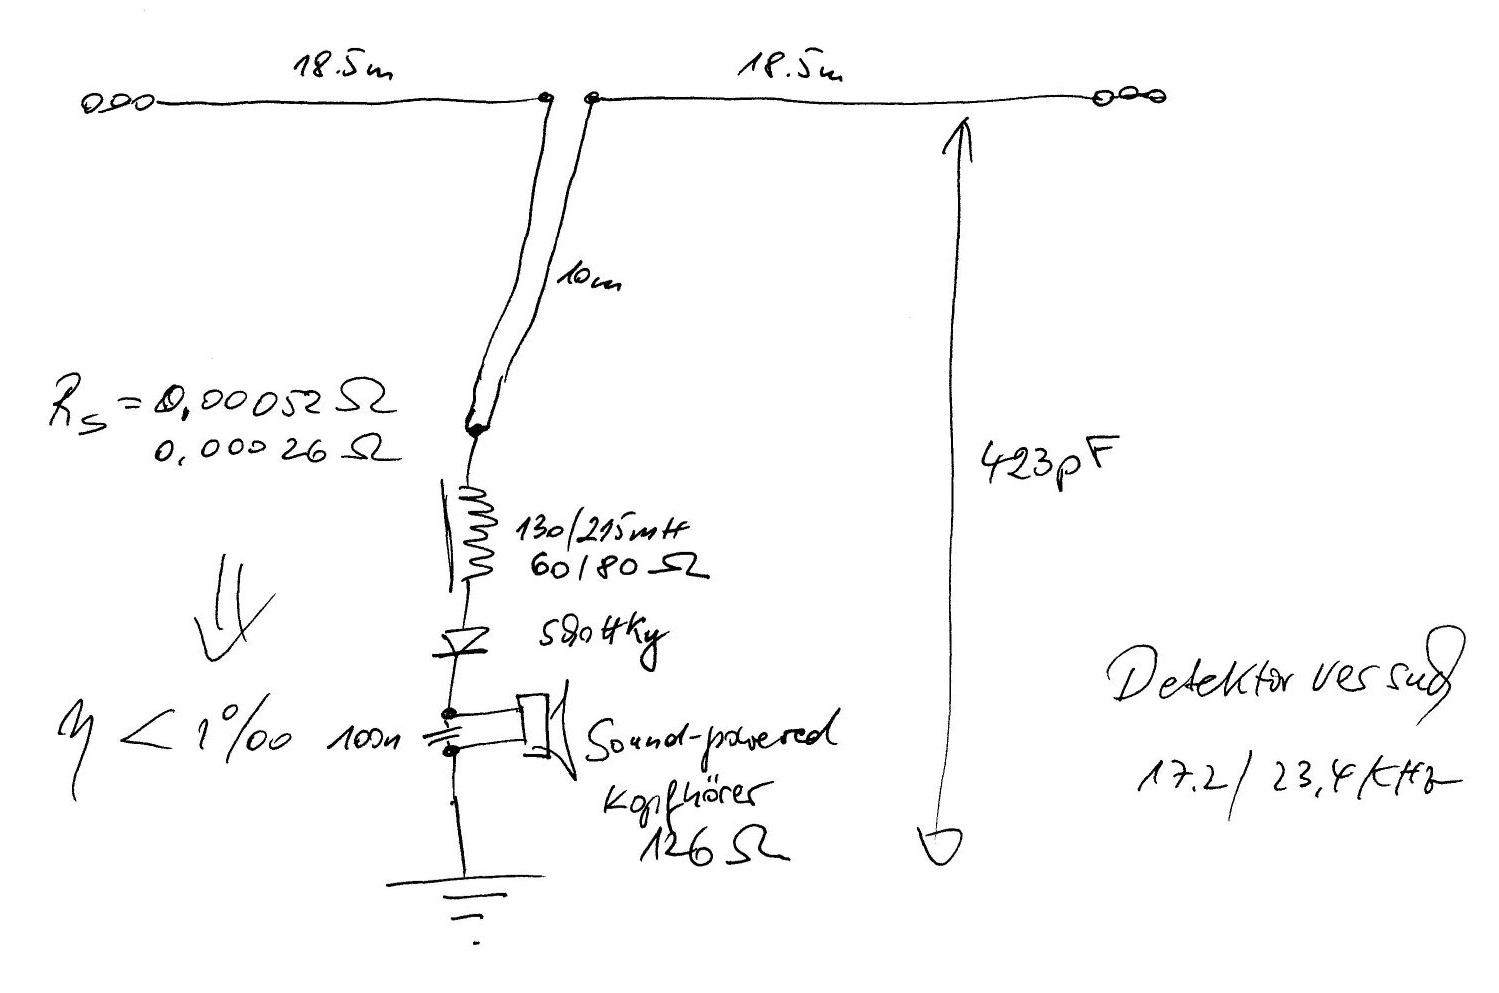 18.5m
18.5m
10m
R_S = 0,00052 Ω
0,00026 Ω
423pF
130/215mH
60/80 Ω
Schottky
η < 1‰
100n
Sound-powered
Kopfhörer
126 Ω
Detektorversuch
17.2/23,4 KHz